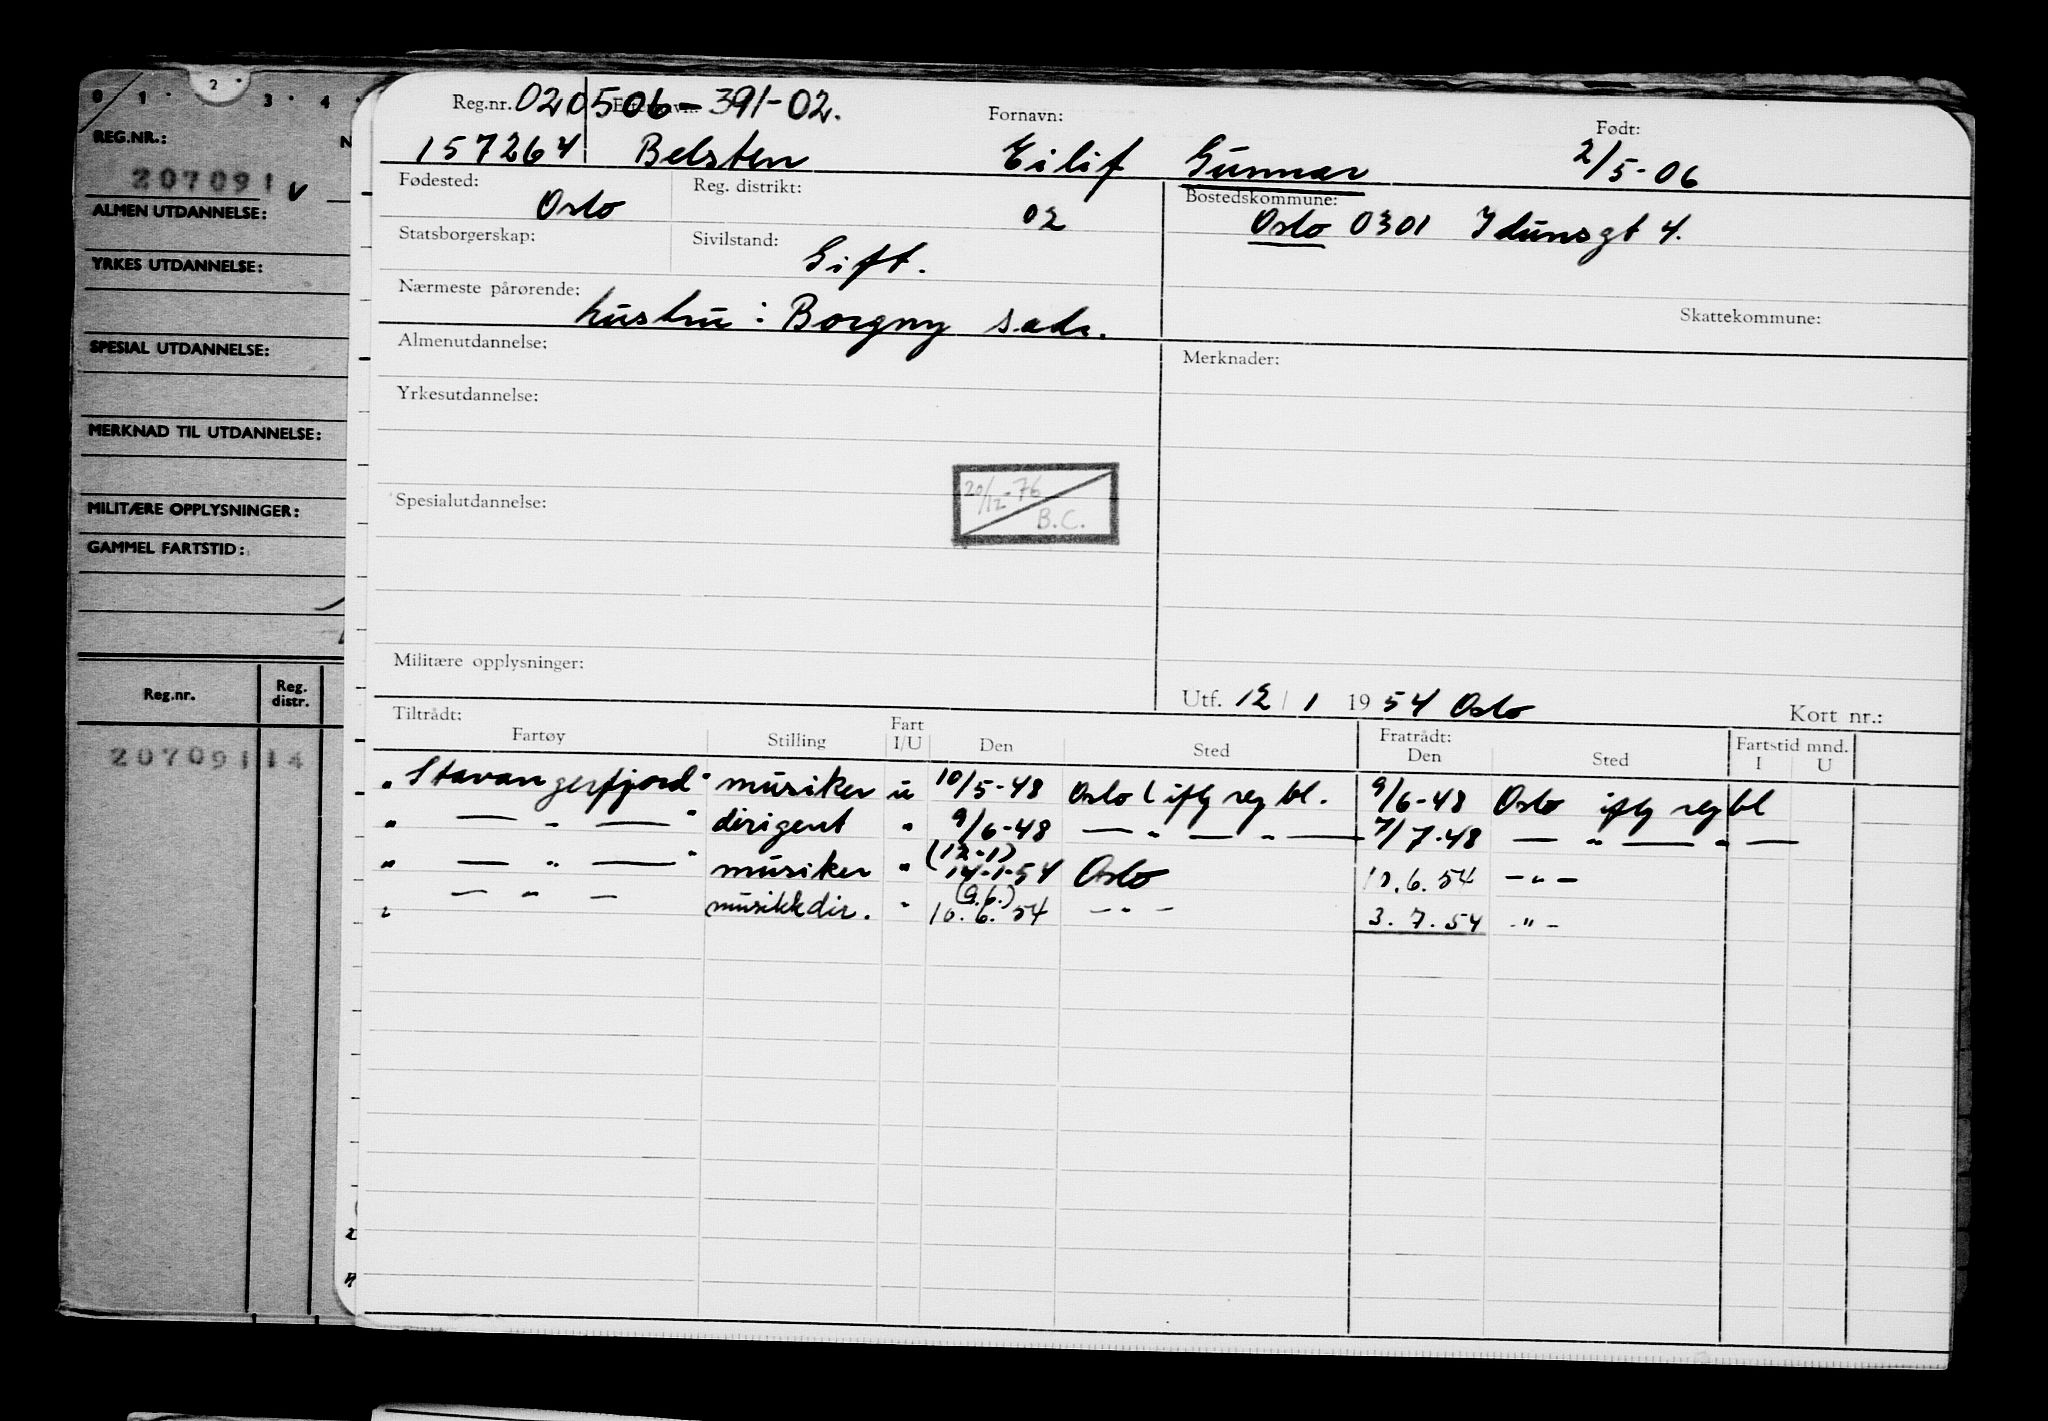 0 1 · 2 · 3 · 4 ·
REG.NR.: N
207091 v
ALMEN UTDANNELSE:
YRKES UTDANNELSE:
SPESIAL UTDANNELSE:
MERKNAD TIL UTDANNELSE:
MILITÆRE OPPLYSNINGER:
GAMMEL FARTSTID:
Reg.nr. Reg. distr.
207091 14
Reg.nr. 020506-391-02. Etternavn: Fornavn: Født:
157264 Belsten Eilif Gunnar 2/5-06
Fødested: Oslo Reg. distrikt: 02 Bostedskommune: Oslo 0301 Idunsgt 4.
Statsborgerskap: Sivilstand: Gift.
Nærmeste pårørende: hustru: Borgny s.adr. Skattekommune:
Almenutdannelse: Merknader:
Yrkesutdannelse:
Spesialutdannelse: 20/12-76 B.C.
Militære opplysninger:
Utf. 12 / 1 19 54 Oslo Kort nr.:
Tiltrådt: Fratrådt: Fartstid mnd.
Fartøy Stilling Fart I/U Den Sted Den Sted I U
"Stavangerfjord" musiker u 10/5-48 Oslo (iflg reg bl. 9/6-48 Oslo iflg reg bl
" — " — " dirigent " 9/6-48 — " — " — 7/7-48 — " — " —
" — " — " musiker " (12-1) 14-1-54 Oslo 10.6.54 — " —
" — " — musikkdir. " (9.6.) 10.6.54 — " — 3.7.54 - " -